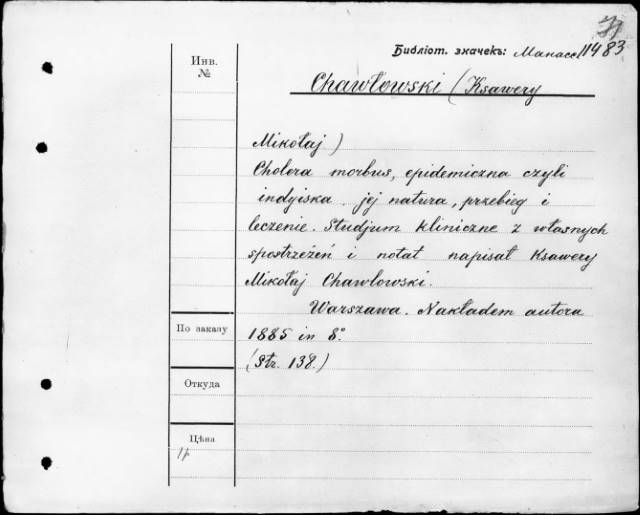 Библіот. значекъ: Манасс/1483
Инв.
№
Chawłowski (Ksawery
Mikołaj)
Cholera morbus, epidemiczna czyli
indyjska. jej natura, przebieg i
leczenie. Studjum kliniczne z własnych
spostrzeżeń i notat napisał Ksawery
Mikołaj Chawłowski.
Warszawa. Nakładem autora
По заказу
1885 in 8°
(Str. 138.)
Откуда
Цѣна